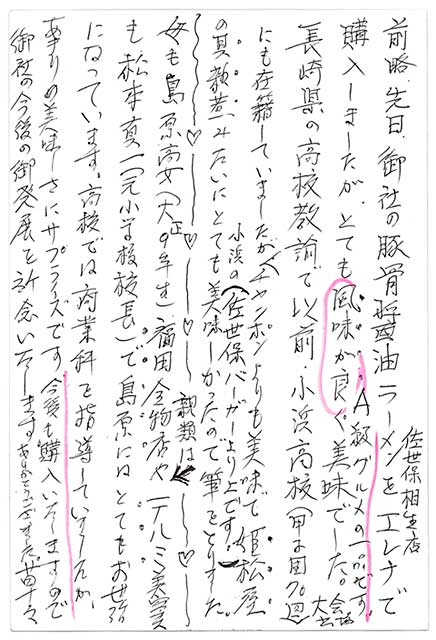 前略.先日.御社の豚骨醤油ラーメンを「エレナ」で
佐世保相生店
購入しましたが、とても風味が良く美味でした。
A級グルメの一品です。
長崎県の高校教諭で以前.小浜高校(甲子園70回
大会出場
にも在籍していましたが(チャンポンよりも美味で姫松屋
小浜の
(佐世保バーガーより上です。)
の具雑煮みたいにとても美味しかったので筆をとりました。
親類は
母も島原高女(大正9年生)福田金物店や「テルミ美容室
も松本真一(元小学校校長)で島原にはとてもお世話
になっています。高校では商業科を指導していましたが、
あまりの美味しさにサプライズです。今後も購入いたしますので
御社の今後の御発展を祈念いたします。ありがとうございました。草々